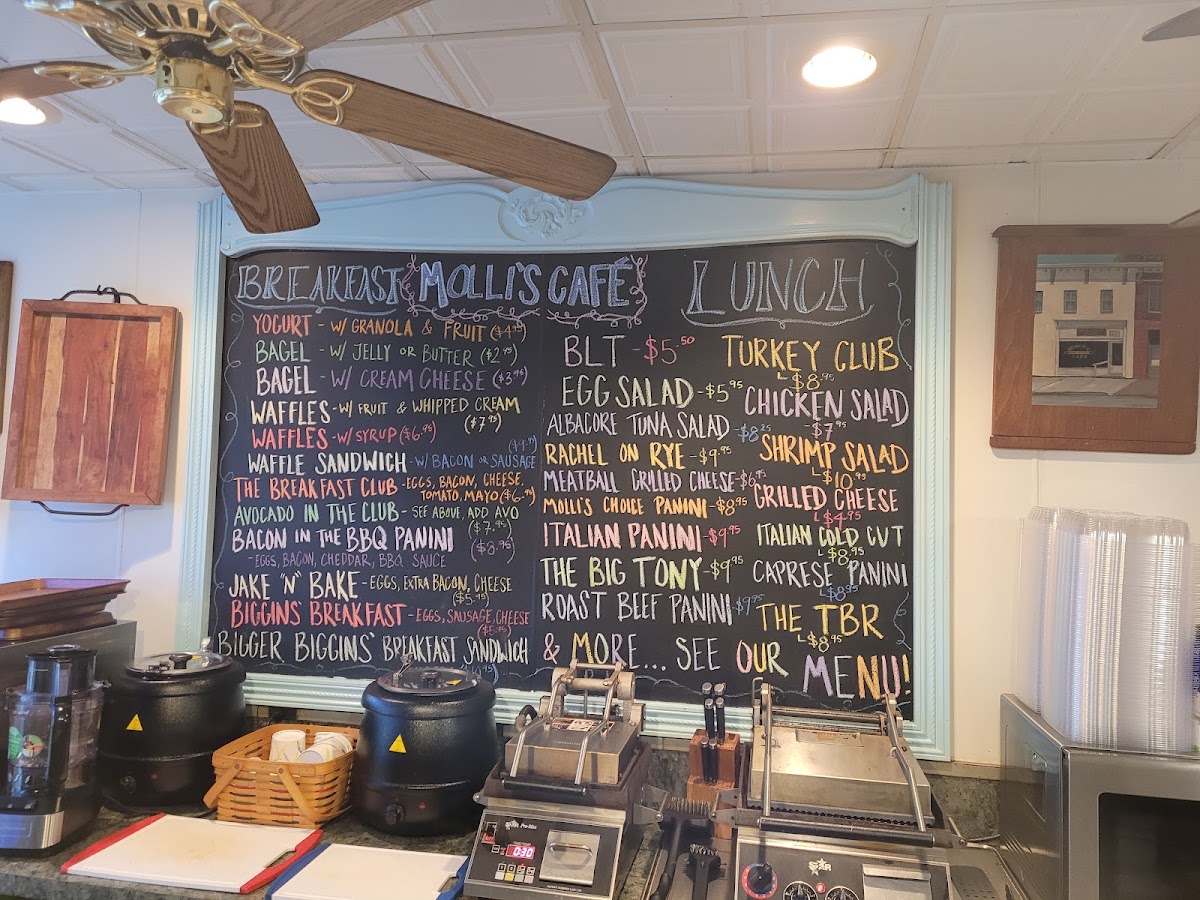 BREAKFAST
MOLLI'S CAFÉ
LUNCH
YOGURT - W/ GRANOLA & FRUIT ($4.95)
BAGEL - W/ JELLY OR BUTTER ($2.95)
BAGEL - W/ CREAM CHEESE ($3.95)
WAFFLES - W/ FRUIT & WHIPPED CREAM
($7.95)
WAFFLES - W/ SYRUP ($6.95)
WAFFLE SANDWICH - W/ BACON OR SAUSAGE
THE BREAKFAST CLUB - EGGS, BACON, CHEESE,
TOMATO, MAYO
AVOCADO IN THE CLUB - SEE ABOVE, ADD AVO
($7.95)
BACON IN THE BBQ PANINI
($8.95)
- EGGS, BACON, CHEDDAR, BBQ SAUCE
JAKE "N" BAKE - EGGS, EXTRA BACON, CHEESE
($5.95)
BIGGINS BREAKFAST - EGGS, SAUSAGE, CHEESE
BIGGER BIGGINS' BREAKFAST SANDWICH
BLT - $5.50
EGG SALAD - $5.95
ALBACORE TUNA SALAD - $8.25
RACHEL ON RYE - $9.95
MEATBALL GRILLED CHEESE - $6.95
MOLLI'S CHOICE PANINI - $8.95
ITALIAN PANINI - $9.95
THE BIG TONY - $9.95
ROAST BEEF PANINI - $9.95
TURKEY CLUB
$8.95
CHICKEN SALAD
- $7.95
SHRIMP SALAD
$10.95
GRILLED CHEESE
$4.95
ITALIAN COLD CUT
$8.95
CAPRESE PANINI
$8.95
THE TBR
$8.95
& MORE... SEE OUR MENU!
STAR Pro-Max
0:30
STAR